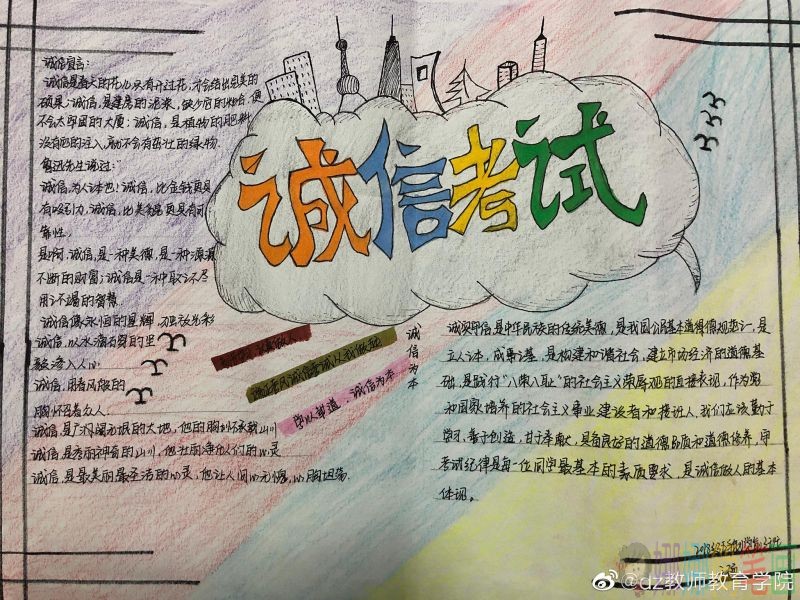 诚信考试
诚信宣言:
诚信是春天的花儿,只有开过花,才会结出完美的
硕果;诚信,是建房的泥浆,缺少后的粘合,便
不会太牢固的大厦;诚信,是植物的肥料
没有它的注入,就不会有茁壮的绿物.
鲁迅先生说过:"
诚信,为人之本也!诚信,比金钱更具
有吸引力,诚信,比美貌更具有可
靠性.
是啊,诚信,是一种美德,是一种源源
不断的财富;诚信是一种取之不尽
用之不竭的智慧.
诚信像永恒的星辉,独放光彩
诚信,以水滴石穿的坚
毅渗入人心
诚信,用春风般的
胸怀召着众人
诚信是广阔无垠的大地,他的胸襟承载山川
诚信是秀丽神奇的山川,他让雨净化人们的心灵
诚信是最美丽最圣洁的心灵,他让人问心无愧,心胸坦荡.
考试诚信从我做起
学以明道,诚信为本
诚信为本
诚实守信,是中华民族的传统美德,是我国公民基本道德规范之一,是
立人之本,成事之基,是构建和谐社会,建立市场经济的道德基
础,是践行"八荣八耻"的社会主义荣辱观的直接表现,作为党
和国家培养的社会主义事业建设者和接班人,我们应该勤于
学习,善于创造,甘于奉献,具备良好的道德品质和道德修养,守
考试纪律是每一位同学最基本的素质要求,是诚信做人的基本
体现。
@dz教师教育学院